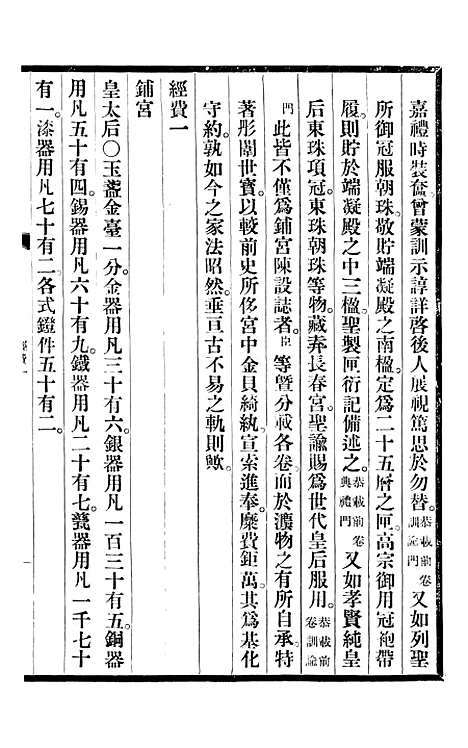 嘉禮時裝奩曾蒙訓示諄詳啓後人展視篤思於勿替。恭載前卷訓諭門又如列聖
所御冠服朝珠敬貯端凝殿之南楹定爲二十五層之匣。高宗御用冠袍帶
履。則貯於端凝殿之中三楹聖製匣衍記備述之。恭載前卷典禮門又如孝賢純皇
后東珠項冠東珠朝珠等物。藏弆長春宮。聖諭賜爲世代皇后服用。恭載前卷訓諭
門此皆不僅爲鋪宮陳設誌者。臣等曁分載各卷。而於瀍物之有所自承特
著彤闈世寶以較前史所侈宮中金貝綺紈宣索進奉。糜費鉅萬其爲基化
守約孰如今之家法昭然。垂亘古不易之軌則歟
經費一
鋪宮
皇太后○玉盞金臺一分金器用凡三十有六。銀器用凡一百三十有五。銅器
用凡五十有四。錫器用凡六十有九。鐵器用凡二十有七。瓷器用凡一千七十
有一。漆器用凡七十有二各式鐙件五十有二。